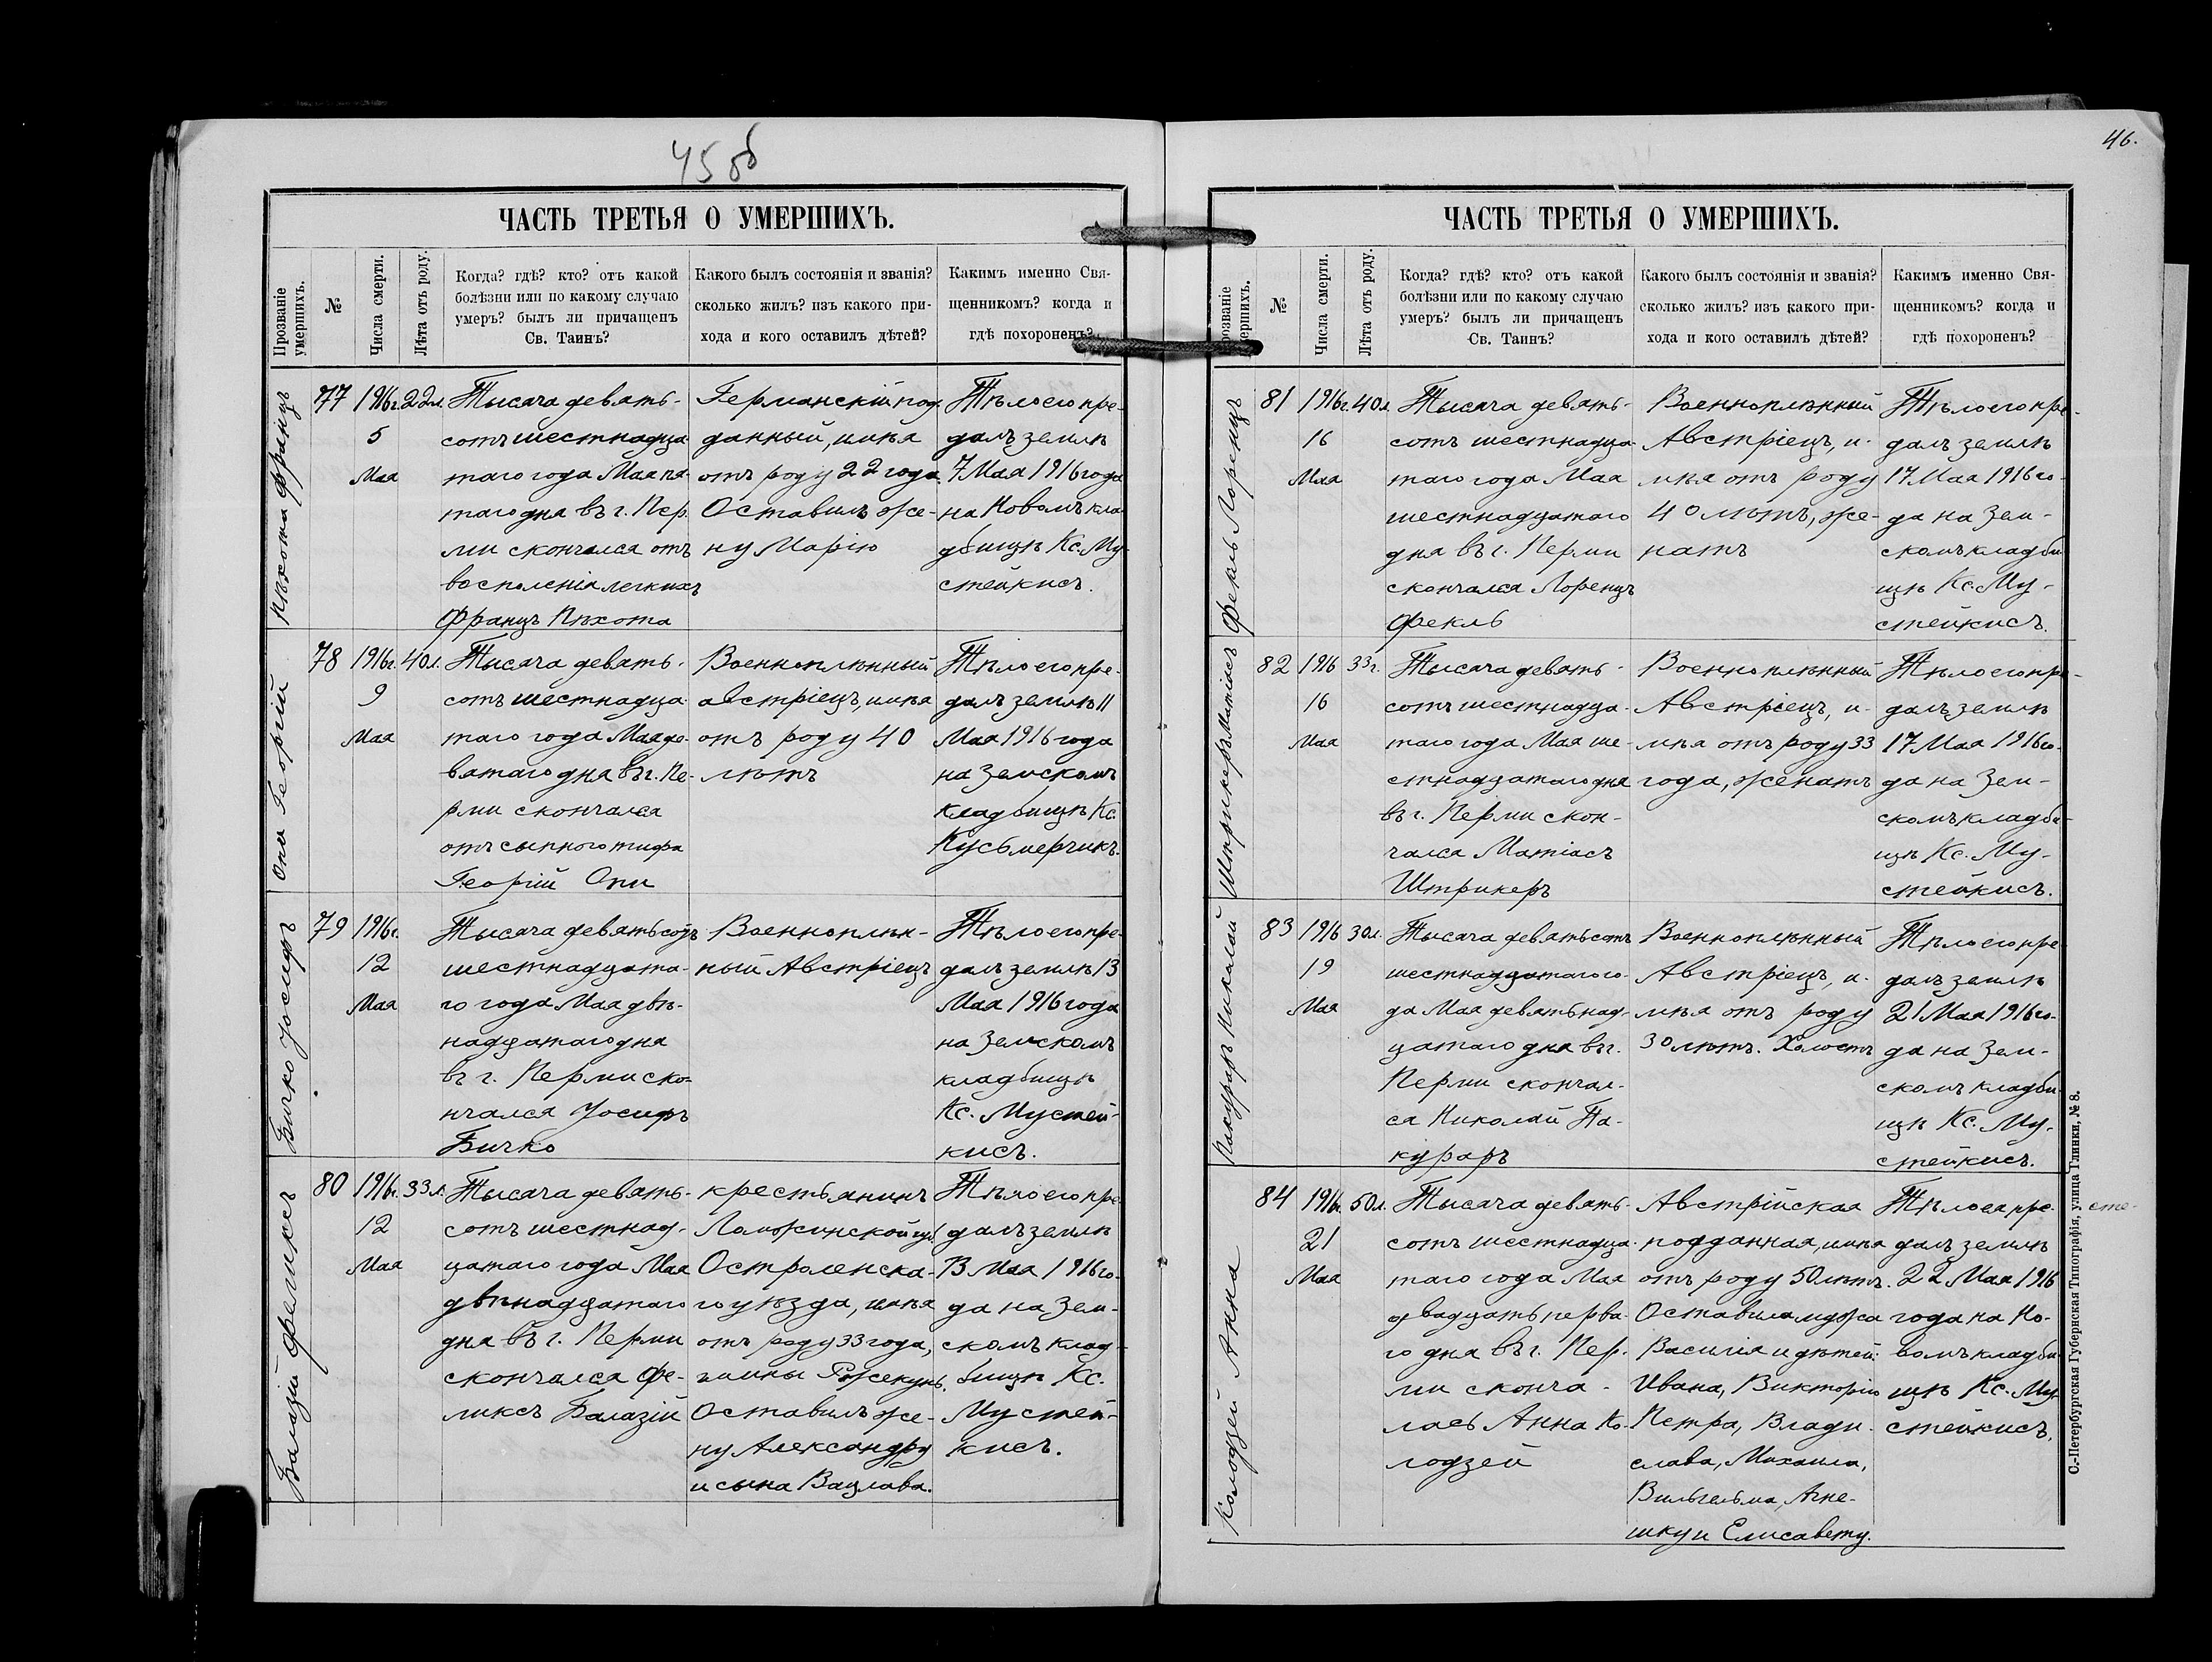 45 об
ЧАСТЬ ТРЕТЬЯ О УМЕРШИХЪ.
Прозваніе умершихъ.
№
Числа смерти.
Лѣта отъ роду.
Когда? гдѣ? кто? отъ какой
болѣзни или по какому случаю
умеръ? былъ ли причащенъ
Св. Таинъ?
Какого былъ состоянія и званія?
сколько жилъ? изъ какого при-
хода и кого оставилъ дѣтей?
Какимъ именно Свя-
щенникомъ? когда и
гдѣ похороненъ?
Пѣхота Францъ
77
1916г.
5
Мая
22л.
Тысяча девять-
сотъ шестнадца-
таго года Мая пя-
таго дня въ г. Пер-
ми скончался отъ
воспаленія легкихъ
Францъ Пѣхота
Германскій под-
данный, имѣя
отъ роду 22 года.
Оставилъ же-
ну Марію
Тѣло его пре-
далъ землѣ
7 Мая 1916 года
на Новомъ кла-
дбищѣ Кс. Му-
стейкисъ.
Опи Георгій
78
1916г.
9
Мая
40л.
Тысяча девять-
сотъ шестнадца-
таго года Мая де-
вятаго дня въ г. Пе-
рми скончался
отъ сыпного тифа
Георгій Опи
Военноплѣнный
австріецъ, имѣя
отъ роду 40
лѣтъ
Тѣло его пре-
далъ землѣ 11
Мая 1916 года
на Земскомъ
кладбищѣ Кс.
Кусьмерчикъ.
Бичко Іосифъ
79
1916г.
12
Мая
Тысяча девятьсотъ
шестнадцата-
го года Мая двѣ-
надцатаго дня
въ г. Перми ско-
нчался Іосифъ
Бичко
Военноплѣн-
ный Австріецъ
Тѣло его пре-
далъ землѣ 13
Мая 1916 года
на Земскомъ
кладбищѣ
Кс. Мустей-
кисъ.
Балазій Феликсъ
80
1916г.
12
Мая
33л.
Тысяча девять-
сотъ шестнад-
цатаго года Мая
двѣнадцатаго
дня въ г. Перми
скончался Фе-
ликсъ Балазій
крестьянинъ
Ломжинской губ.
Остроленска-
го уѣзда, имѣя
отъ роду 33 года,
гмины Ржекунь.
Оставилъ же-
ну Александру
и сына Вацлава.
Тѣло его пре-
далъ землѣ
13 Мая 1916 го-
да на Зем-
скомъ клад-
бищѣ Кс.
Мустей-
кисъ.
46.
ЧАСТЬ ТРЕТЬЯ О УМЕРШИХЪ.
розваніе мершихъ.
№
Числа смерти.
Лѣта отъ роду.
Когда? гдѣ? кто? отъ какой
болѣзни или по какому случаю
умеръ? былъ ли причащенъ
Св. Таинъ?
Какого былъ состоянія и званія?
сколько жилъ? изъ какого при-
хода и кого оставилъ дѣтей?
Какимъ именно Свя-
щенникомъ? когда и
гдѣ похороненъ?
Фекль Лоренцъ
81
1916г.
16
Мая
40л.
Тысяча девять-
сотъ шестнадца-
таго года Мая
шестнадцатаго
дня въ г. Перми
скончался Лоренцъ
Фекль
Военноплѣнный
Австріецъ, и-
мѣя отъ роду
40 лѣтъ, же-
натъ
Тѣло его пре-
далъ землѣ
17 Мая 1916 го-
да на Зем-
скомъ кладби-
щѣ Кс. Му-
стейкисъ.
Штрикеръ Матіасъ
82
1916
16
Мая
33г.
Тысяча девять-
сотъ шестнадца-
таго года Мая ше-
стнадцатаго дня
въ г. Перми скон-
чался Матіасъ
Штрикеръ
Военноплѣнный
Австріецъ, и-
мѣя отъ роду 33
года, женатъ
Тѣло его пре-
далъ землѣ
17 Мая 1916 го-
да на Зем-
скомъ кладби-
щѣ Кс. Му-
стейкисъ.
Пакураръ Николай
83
1916
19
Мая
30л.
Тысяча девятьсотъ
шестнадцатаго го-
да Мая девятьнад-
цатаго дня въ г.
Перми скончал-
ся Николай Па-
кураръ
Военноплѣнный
Австріецъ, и-
мѣя отъ роду
30 лѣтъ. Холостъ
Тѣло его пре-
далъ землѣ
21 Мая 1916 го-
да на Зем-
скомъ кладби-
щѣ Кс. Му-
стейкисъ.
Колодзей Анна
84
1916г.
21
Мая
50л.
Тысяча девять-
сотъ шестнадца-
таго года Мая
двадцать перва-
го дня въ г. Пер-
ми сконча-
лась Анна Ко-
лодзей
Австрійская
подданная, имѣя
отъ роду 50 лѣтъ.
Оставила мужа
Василія и дѣтей:
Ивана, Викторію
Петра, Влади-
слава, Михаила,
Вильгельма, Агне-
шку и Елисавету.
Тѣло ея пре-
далъ землѣ
22 Мая 1916
года на Но-
вомъ кладби-
щѣ Кс. Му-
стейкисъ.
С.-Петербургская Губернская Типографія, улица Глинки, № 8.